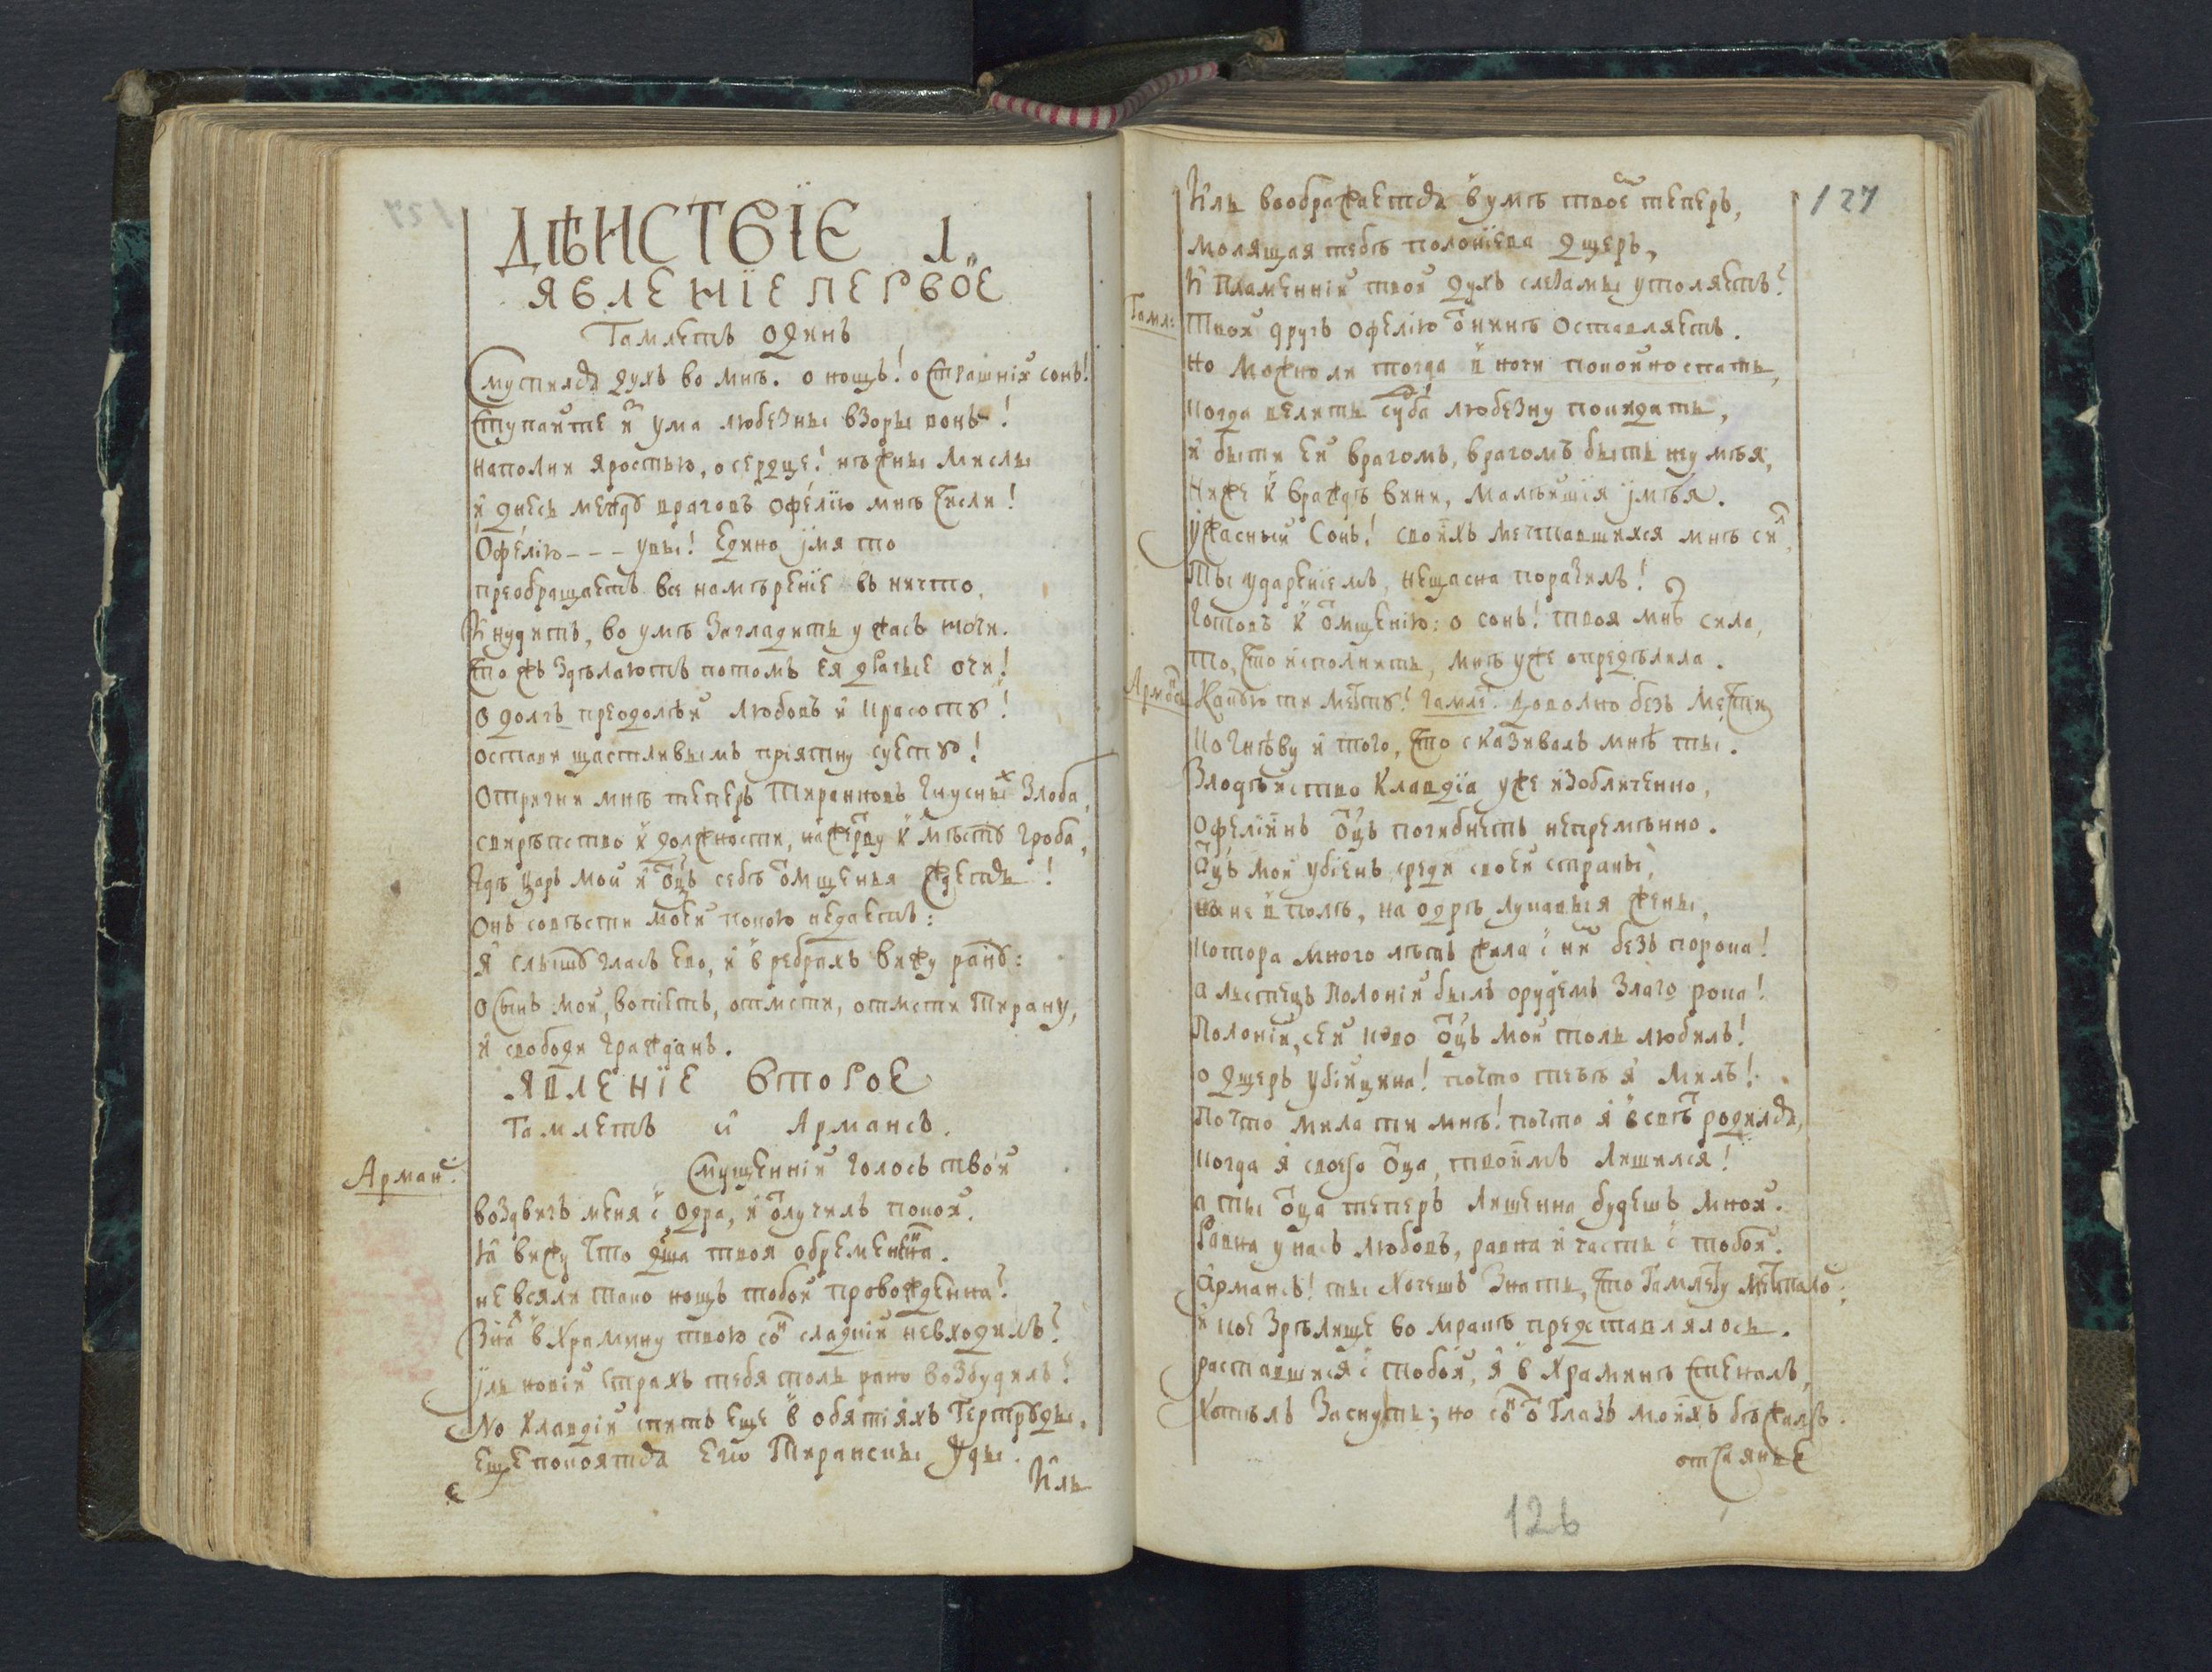 ДѢИСТВІЕ 1
ЯВЛЕНІЕ ПЕРВОЕ
Гамлетъ одинъ
Смутился духъ во мнѣ. о нощь! о страшній сонъ!
Ступайте из ума любезны взоры вонъ!
наполни яростью, о сердце! нѣжны мислы
и днесь между враговъ офелію мнѣ числи!
Офелію--- увы! Едино имя то
преобращаетъ все намѣреніе въ ничто,
И нудитъ, во умѣ загладить ужасъ ночи.
что жъ здѣлаютъ потомъ ея драгые очи!
о долгъ преодолѣй любовъ и красоту!
остави щастливымъ пріятну суету!
Отрыгни мнѣ теперь Тиранновъ гнусных злоба,
свирѣпство к должности, на жертву к мѣсту гроба,
Гдѣ царь мой и отцъ себѣ отмщенья ждетъ!
Онъ совѣсти моей покою недаетъ:
Я слышу гласъ его, и в ребрахъ вижу рану:
о сынъ мой, вопіетъ, отмсти, отмсти Тирану,
и свободи гражданъ.
ЯВЛЕНІЕ Второе
Гамлетъ и Армансъ.
Арман:
Смущенній голосъ твой
воздвигъ меня с одра, и отлучилъ покой.
Я вижу что дша твоя обремененна.
не всяли тако нощь тобой провожденна?
в храмину твою сон сладкій невходилъ?
іль новій страхъ тебя толь рано возбудилъ?
No клавдій спитъ еще в обятіяхъ Гертруды,
еще покоятся его Тиранскы уды.
Иль
127
Иль воображается в умѣ твоем теперь,
молящая тебѣ полоніева дщерь,
И Пламенній твой духъ слезамы утоляетъ?
Гамл:
Твой другъ офелію отнинѣ оставляетъ.
но можно ли тогда в ночи покойно спать,
когда велитъ судба любезну покидать,
и быти ей врагомъ, врагомъ быть не умѣя,
Ниже к враждѣ вини, малѣйшія имѣя.
Ужасный Сонъ! своихъ мечтавшихся мнѣ сил,
Ты удареніемъ, нещасна поразилъ!
Готовъ к отмщенію: о сонъ! твоя мнѣ сила,
То, что исполнить, мнѣ уже опредѣлила.
Арман:
Какую ти мечту! Гамле: Доволно безъ мечти
Ко гнѣву и того, что сказивалъ мнѣ ты.
Злодѣйство Клавдіа уже изобличенно,
Офелійнъ отцъ погибнетъ непремѣнно.
Отцъ мой убіенъ среди своей страны,
не в полѣ, на одрѣ лукавыя жены,
котора много лѣтъ жила с ним безъ порока!
а льстецъ Полоній былъ орудемъ злаго рока!
Полоній, сей кого отцъ мой толь любилъ!
о дщерь убійцина! почто тебѣ я милъ!
Почто мила ти мнѣ! почто я в свѣт родился,
когда я своего отца, твоимъ лишился!
а ты отца теперь лишенна будешъ мной.
Равна у насъ любовъ, равна и часть с тобой.
Армансъ! ты хочешъ знать, что Гамлету мечталось;
и кое зрѣлище во мракѣ представлялось.
раставшися с тобой, я в храминѣ стеналъ,
Хотѣлъ заснуть; но сон от глазъ моихъ бѣжалъ.
отчаянье
126